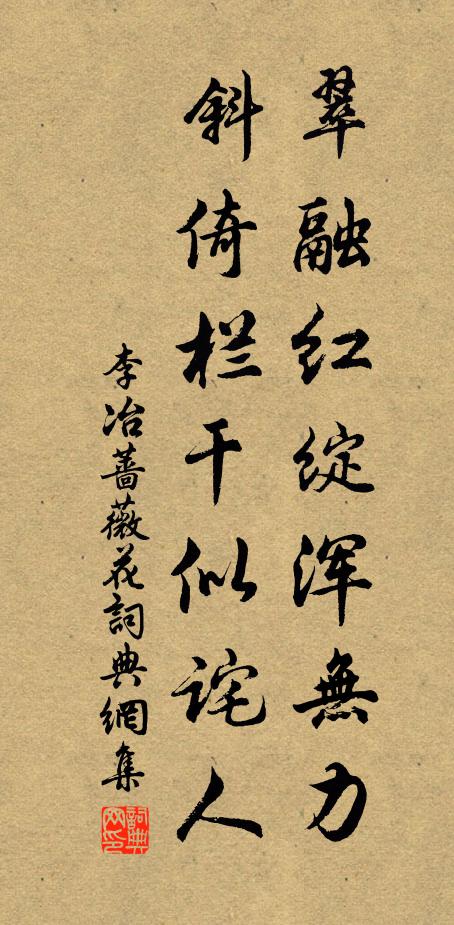 翠融红绽浑無力
斜倚栏干似詫人
李冶薔薇花詞典網集
詞典网印